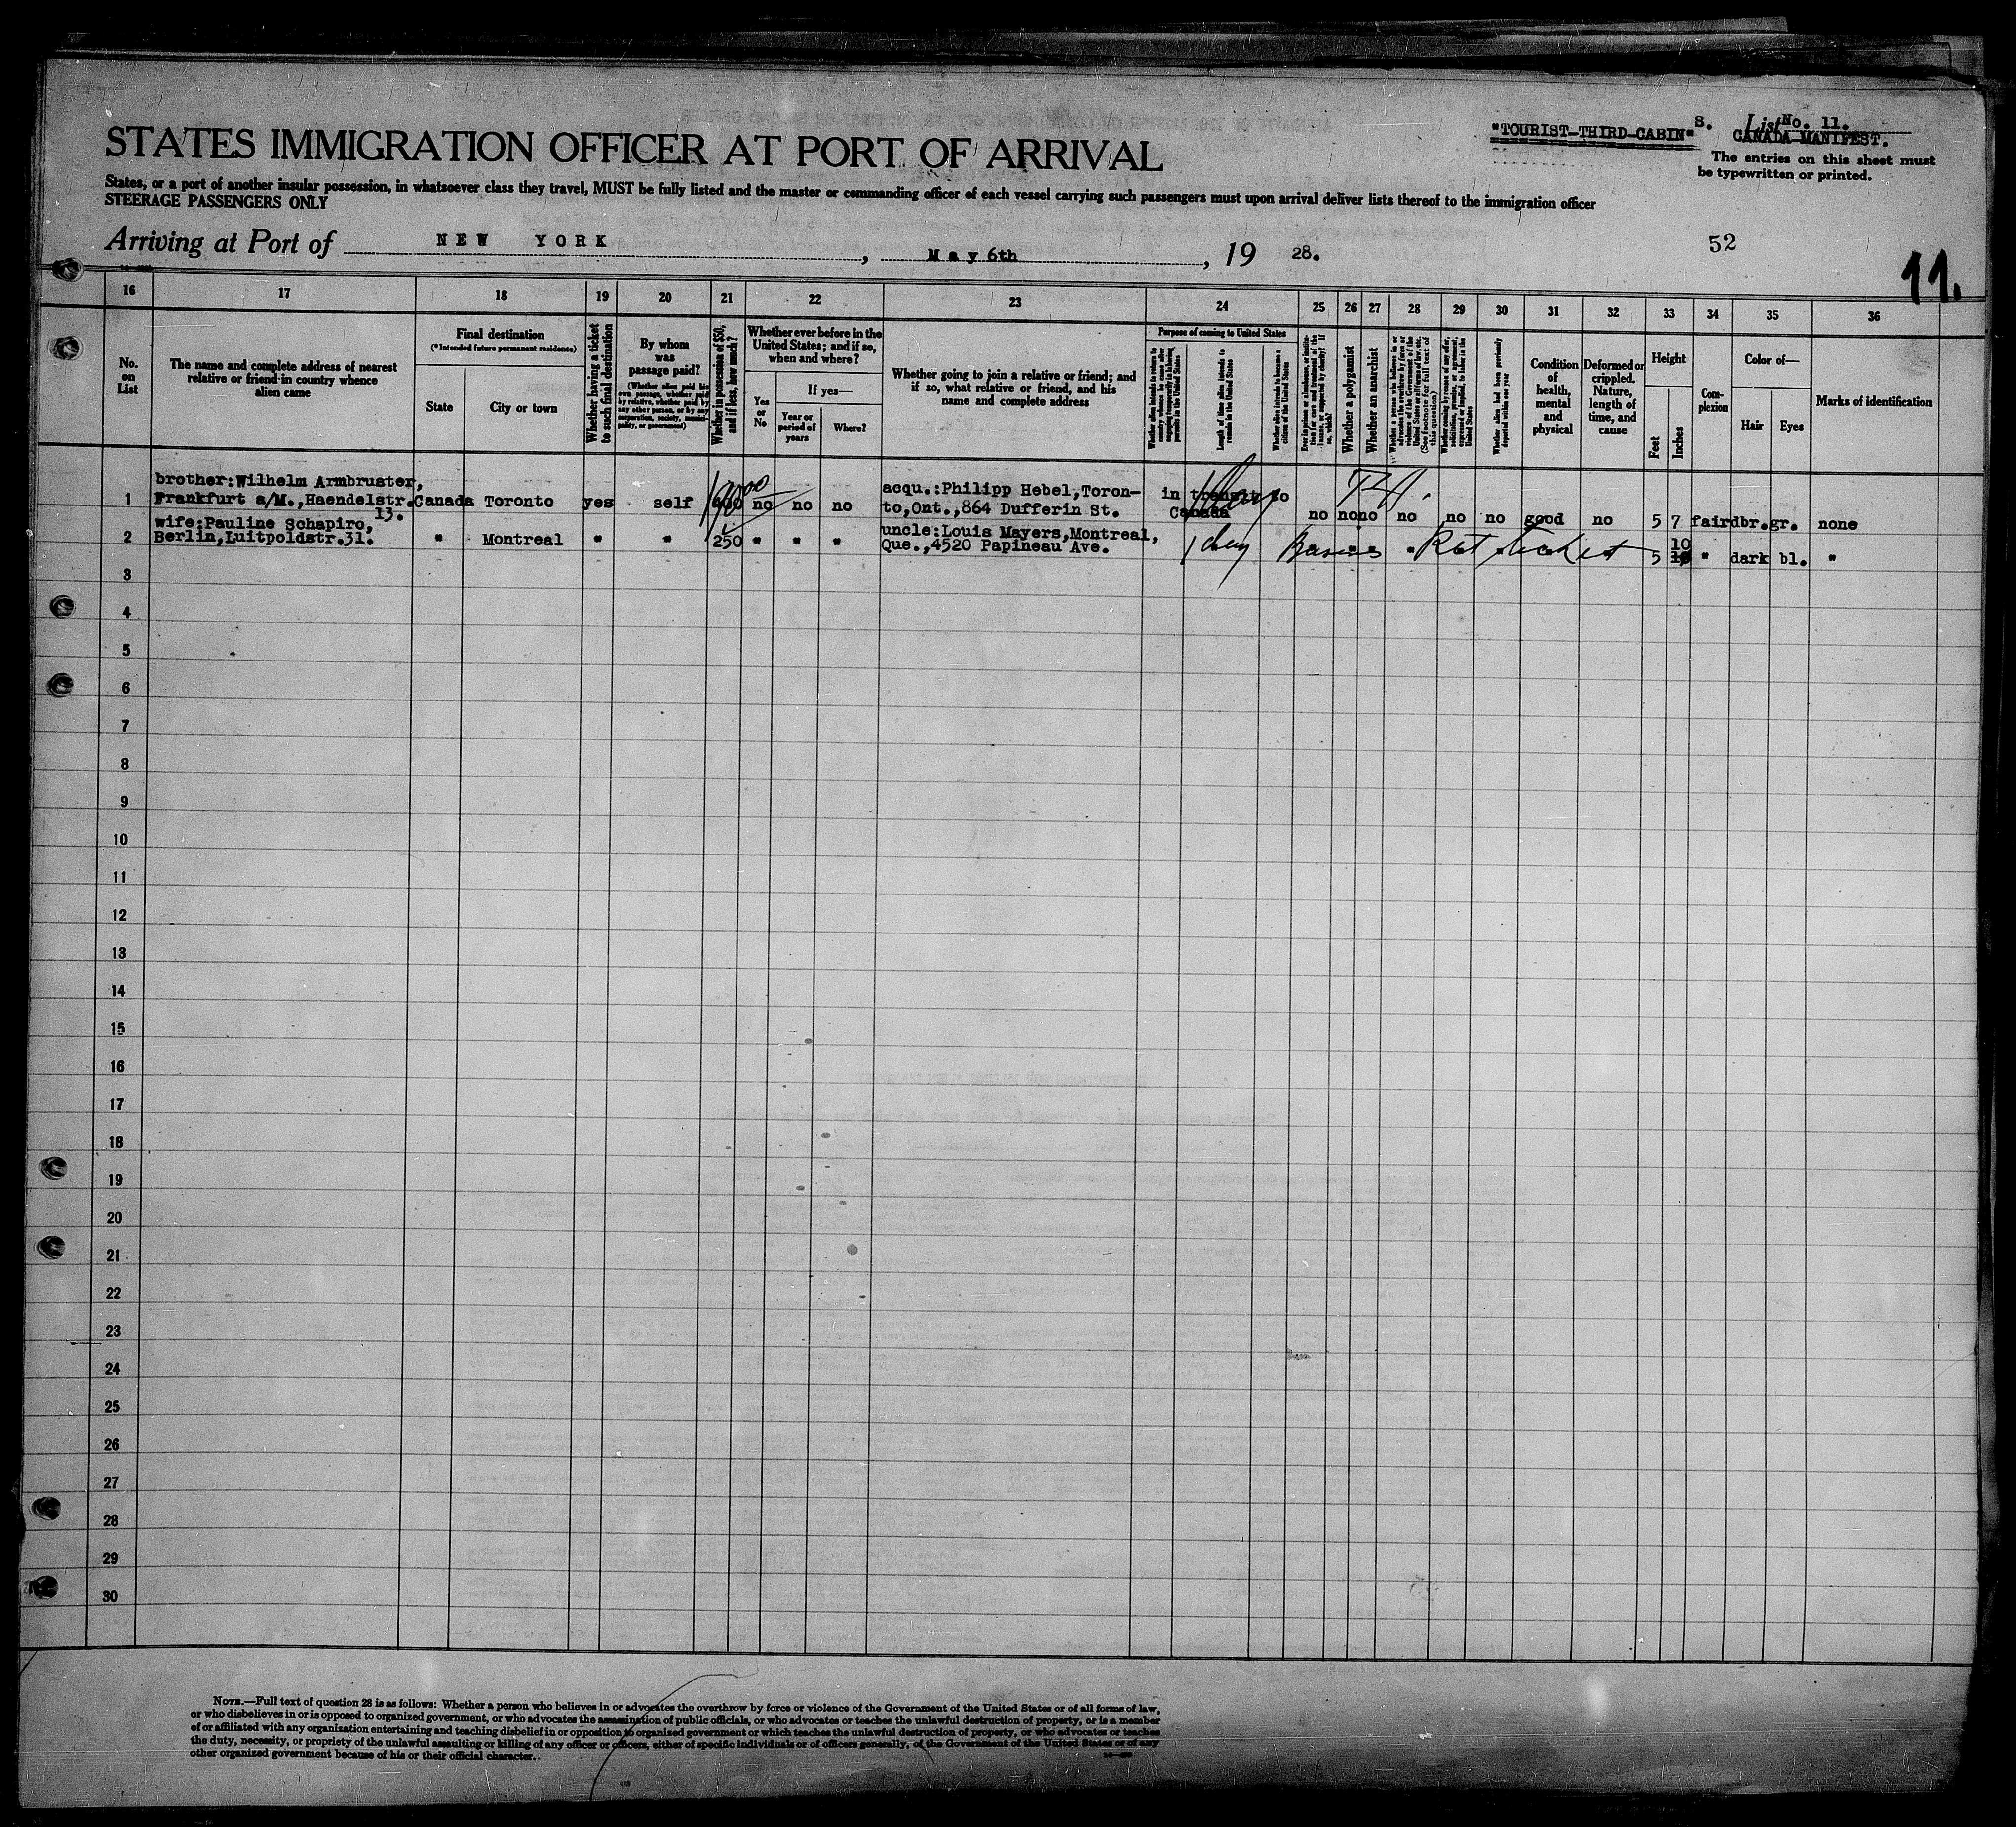 "TOURIST-THIRD-CABIN" S. List No. 11.
CANADA MANIFEST.
STATES IMMIGRATION OFFICER AT PORT OF ARRIVAL
The entries on this sheet must
be typewritten or printed.
States, or a port of another insular possession, in whatsoever class they travel, MUST be fully listed and the master or commanding officer of each vessel carrying such passengers must upon arrival deliver lists thereof to the immigration officer
STEERAGE PASSENGERS ONLY
Arriving at Port of NEW YORK, May 6th, 19 28.
52
11.
16 17 18 19 20 21 22 23 24 25 26 27 28 29 30 31 32 33 34 35 36
No. on List
The name and complete address of nearest
relative or friend in country whence
alien came
Final destination
(*Intended future permanent residence)
State
City or town
Whether having a ticket
to such final destination
By whom
was
passage paid?
(Whether alien paid his
own passage, whether paid
by relative, whether paid by
any other person, or by any
corporation, society, munici-
pality, or government)
Whether in possession of $50,
and if less, how much?
Whether ever before in the
United States; and if so,
when and where?
Yes
or
No
If yes—
Year or
period of
years
Where?
Whether going to join a relative or friend; and
if so, what relative or friend, and his
name and complete address
Purpose of coming to United States
Length of time alien intends to
remain in the United States
Whether alien intends to become a
citizen of the United States
Whether a polygamist
Whether an anarchist
(See footnote for full text of
this question)
Whether alien had been previously
deported within one year
Condition
of
health,
mental
and
physical
Deformed or
crippled.
Nature,
length of
time, and
cause
Height
Feet
Inches
Com-
plexion
Color of—
Hair
Eyes
Marks of identification
brother:Wilhelm Armbruster,
1 Frankfurt a/M.,Haendelstr. 13. Canada Toronto yes self no no no
acqu.:Philipp Hebel,Toron-
to,Ont.,864 Dufferin St.
in transit to
Canada
no no no no no no good no 5 7 fair dbr. gr. none
wife:Pauline Schapiro,
2 Berlin,Luitpoldstr.31. " Montreal " " 250 " " "
uncle:Louis Mayers,Montreal,
Que.,4520 Papineau Ave.
Ret ticket
5 10 " dark bl. "
3
4
5
6
7
8
9
10
11
12
13
14
15
16
17
18
19
20
21
22
23
24
25
26
27
28
29
30
NOTE.—Full text of question 28 is as follows: Whether a person who believes in or advocates the overthrow by force or violence of the Government of the United States or of all forms of law,
or who disbelieves in or is opposed to organized government, or who advocates the assassination of public officials, or who advocates or teaches the unlawful destruction of property, or is a member
of or affiliated with any organization entertaining and teaching disbelief in or opposition to organized government or which teaches the unlawful destruction of property, or who advocates or teaches
the duty, necessity, or propriety of the unlawful assaulting or killing of any officer or officers, either of specific individuals or of officers generally, of the Government of the United States or of any
other organized government because of his or their official character.